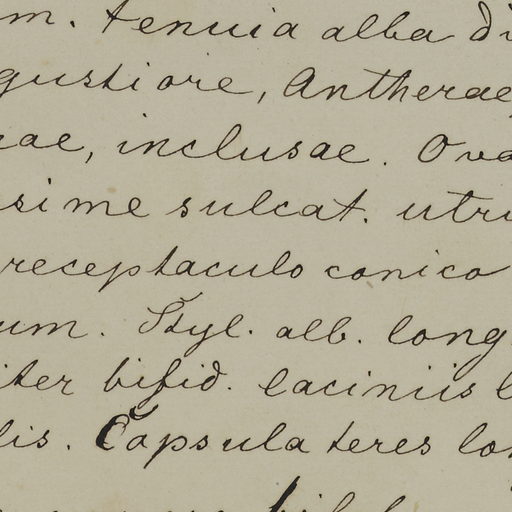 m. tenuia alba di
gustiore, Antherae
rae, inclusae. Ova
sime sulcat. utri
receptaculo conico
um. Styl. alb. long
iter bifid. laciniis l
lis. Capsula teres lon